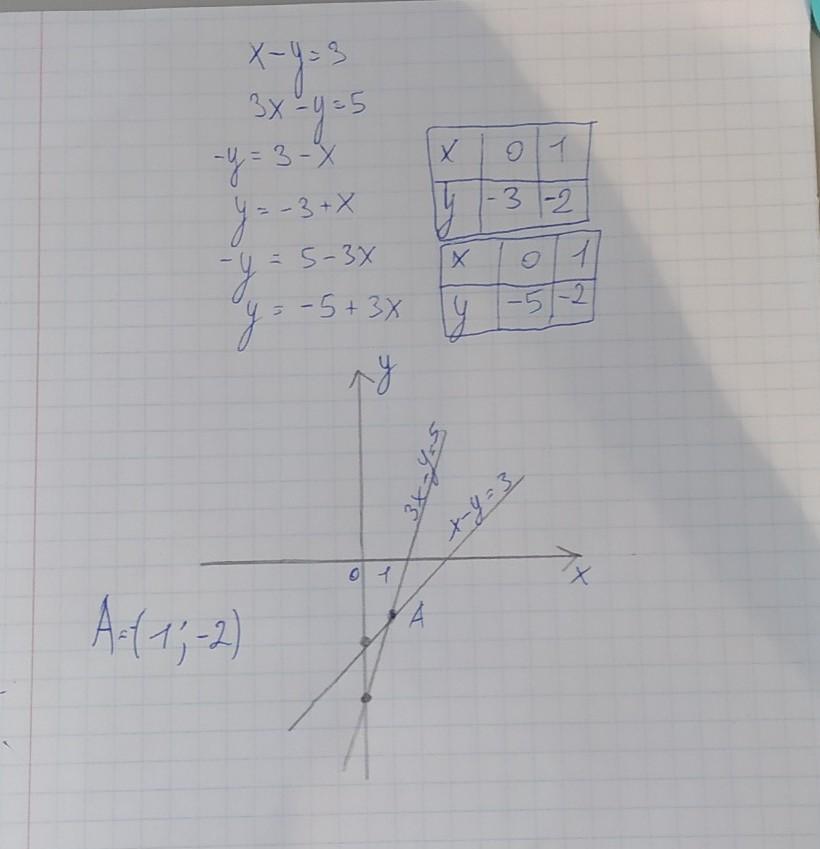 x-y=3
3x-y=5
-y=3-x
y=-3+x
-y=5-3x
y=-5+3x
x 0 1
y -3 -2
x 0 1
y -5 -2
y
3x-y=5
x-y=3
0 1
x
A
A=(1;-2)